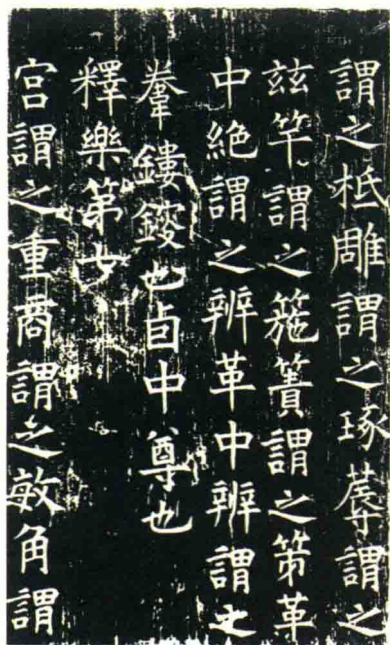 謂之柢雕謂之琢蓐謂之
兹竿謂之箷簀謂之第革
中絶謂之辨革中辨謂之
羍鏤鋑也卣中尊也
釋樂第七
宫謂之重商謂之敏角謂